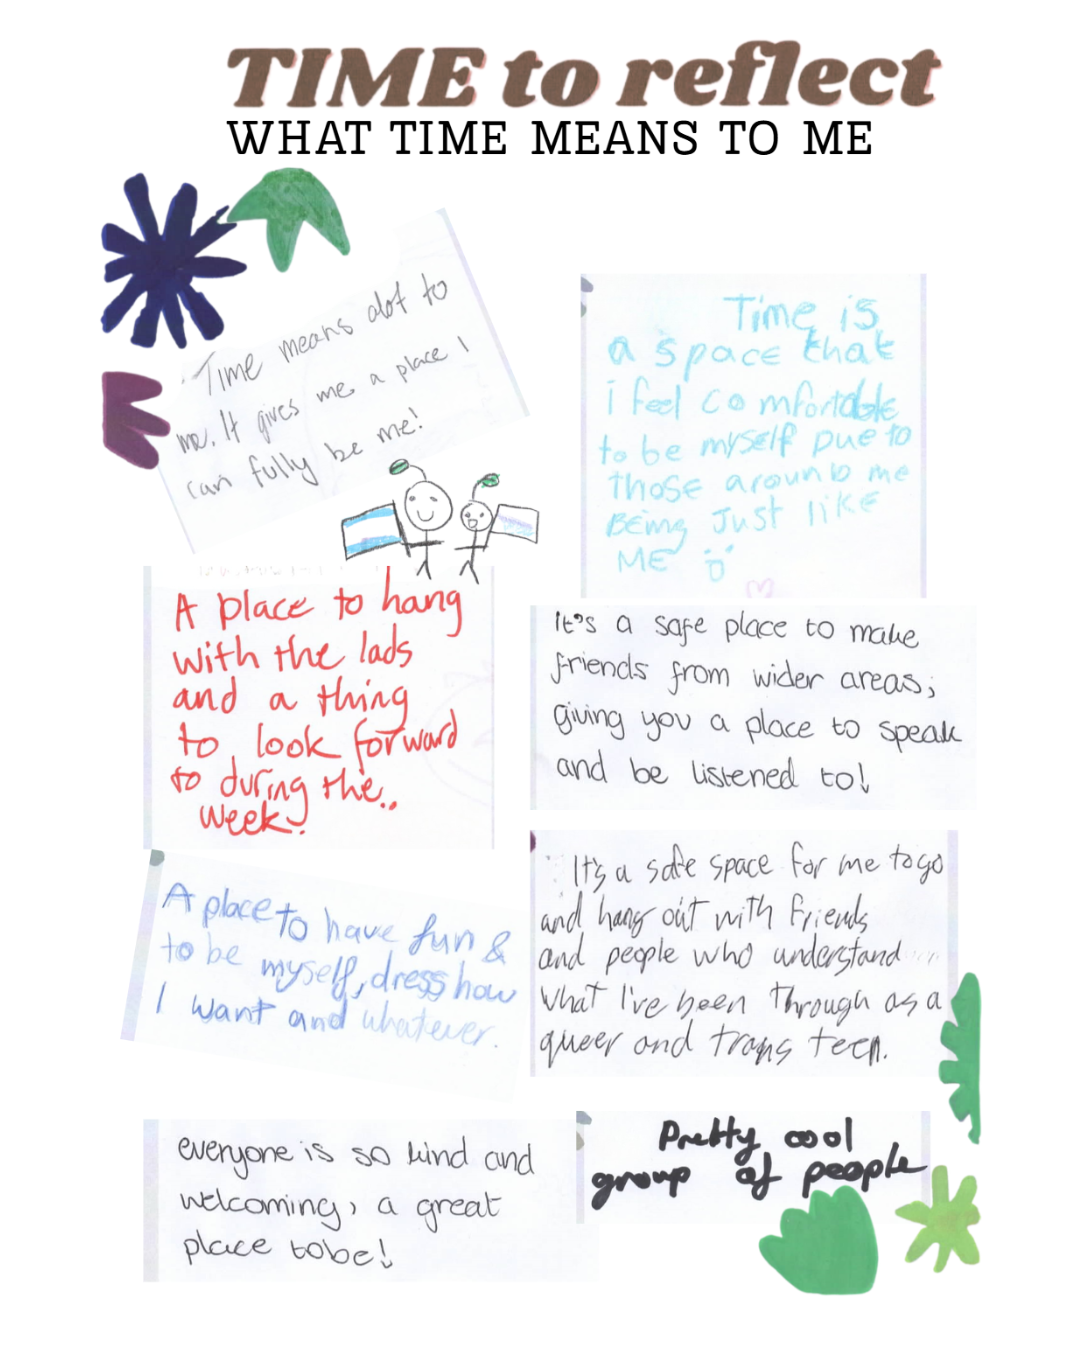 TIME to reflect
WHAT TIME MEANS TO ME
Time means alot to
me. It gives me a place I
can fully be me!
Time is
a space that
i feel comfortable
to be myself Due to
those around me
BEing Just like
ME
A place to hang
with the lads
and a thing
to look forward
to during the..
week.
It's a safe place to make
friends from wider areas;
giving you a place to speak
and be listened to!
A place to have fun &
to be myself, dress how
I want and whatever.
It's a safe space for me to go
and hang out with friends
and people who understand
what I've been through as a
queer and trans teen.
everyone is so kind and
welcoming, a great
place tobe!
Pretty cool
group of people